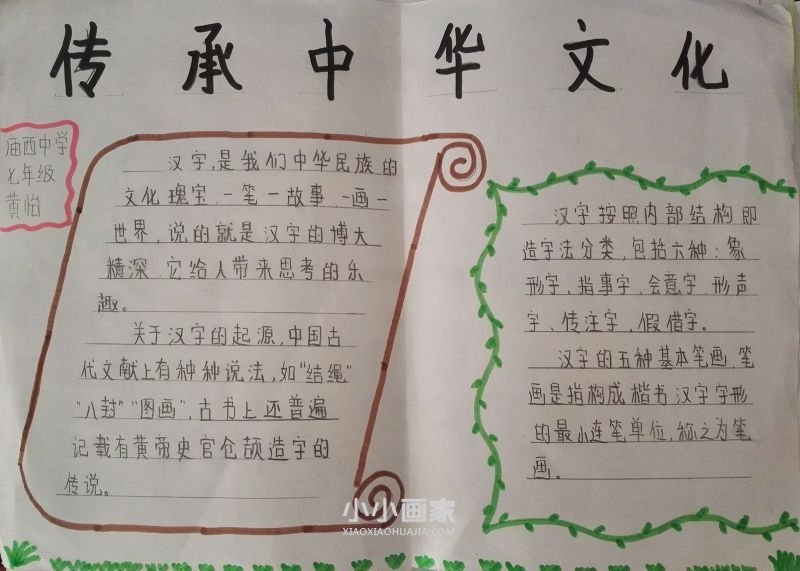 传承中华文化
庙西中学
七年级
黄怡
汉字,是我们中华民族的
文化瑰宝.一笔一故事.一画一
世界,说的就是汉字的博大
精深.它给人带来思考的乐
趣。
关于汉字的起源,中国古
代文献上有种种说法,如“结绳”
“八封”“图画”,古书上还普遍
记载有黄帝史官仓颉造字的
传说。
汉字按照内部结构即
造字法分类,包括六种:象
形字、指事字、会意字、形声
字、传注字、假借字。
汉字的五种基本笔画.笔
画是指构成楷书汉字字形
的最小连笔单位,称之为笔
画。
小小画家
XIAOXIAOHUAJIA.COM